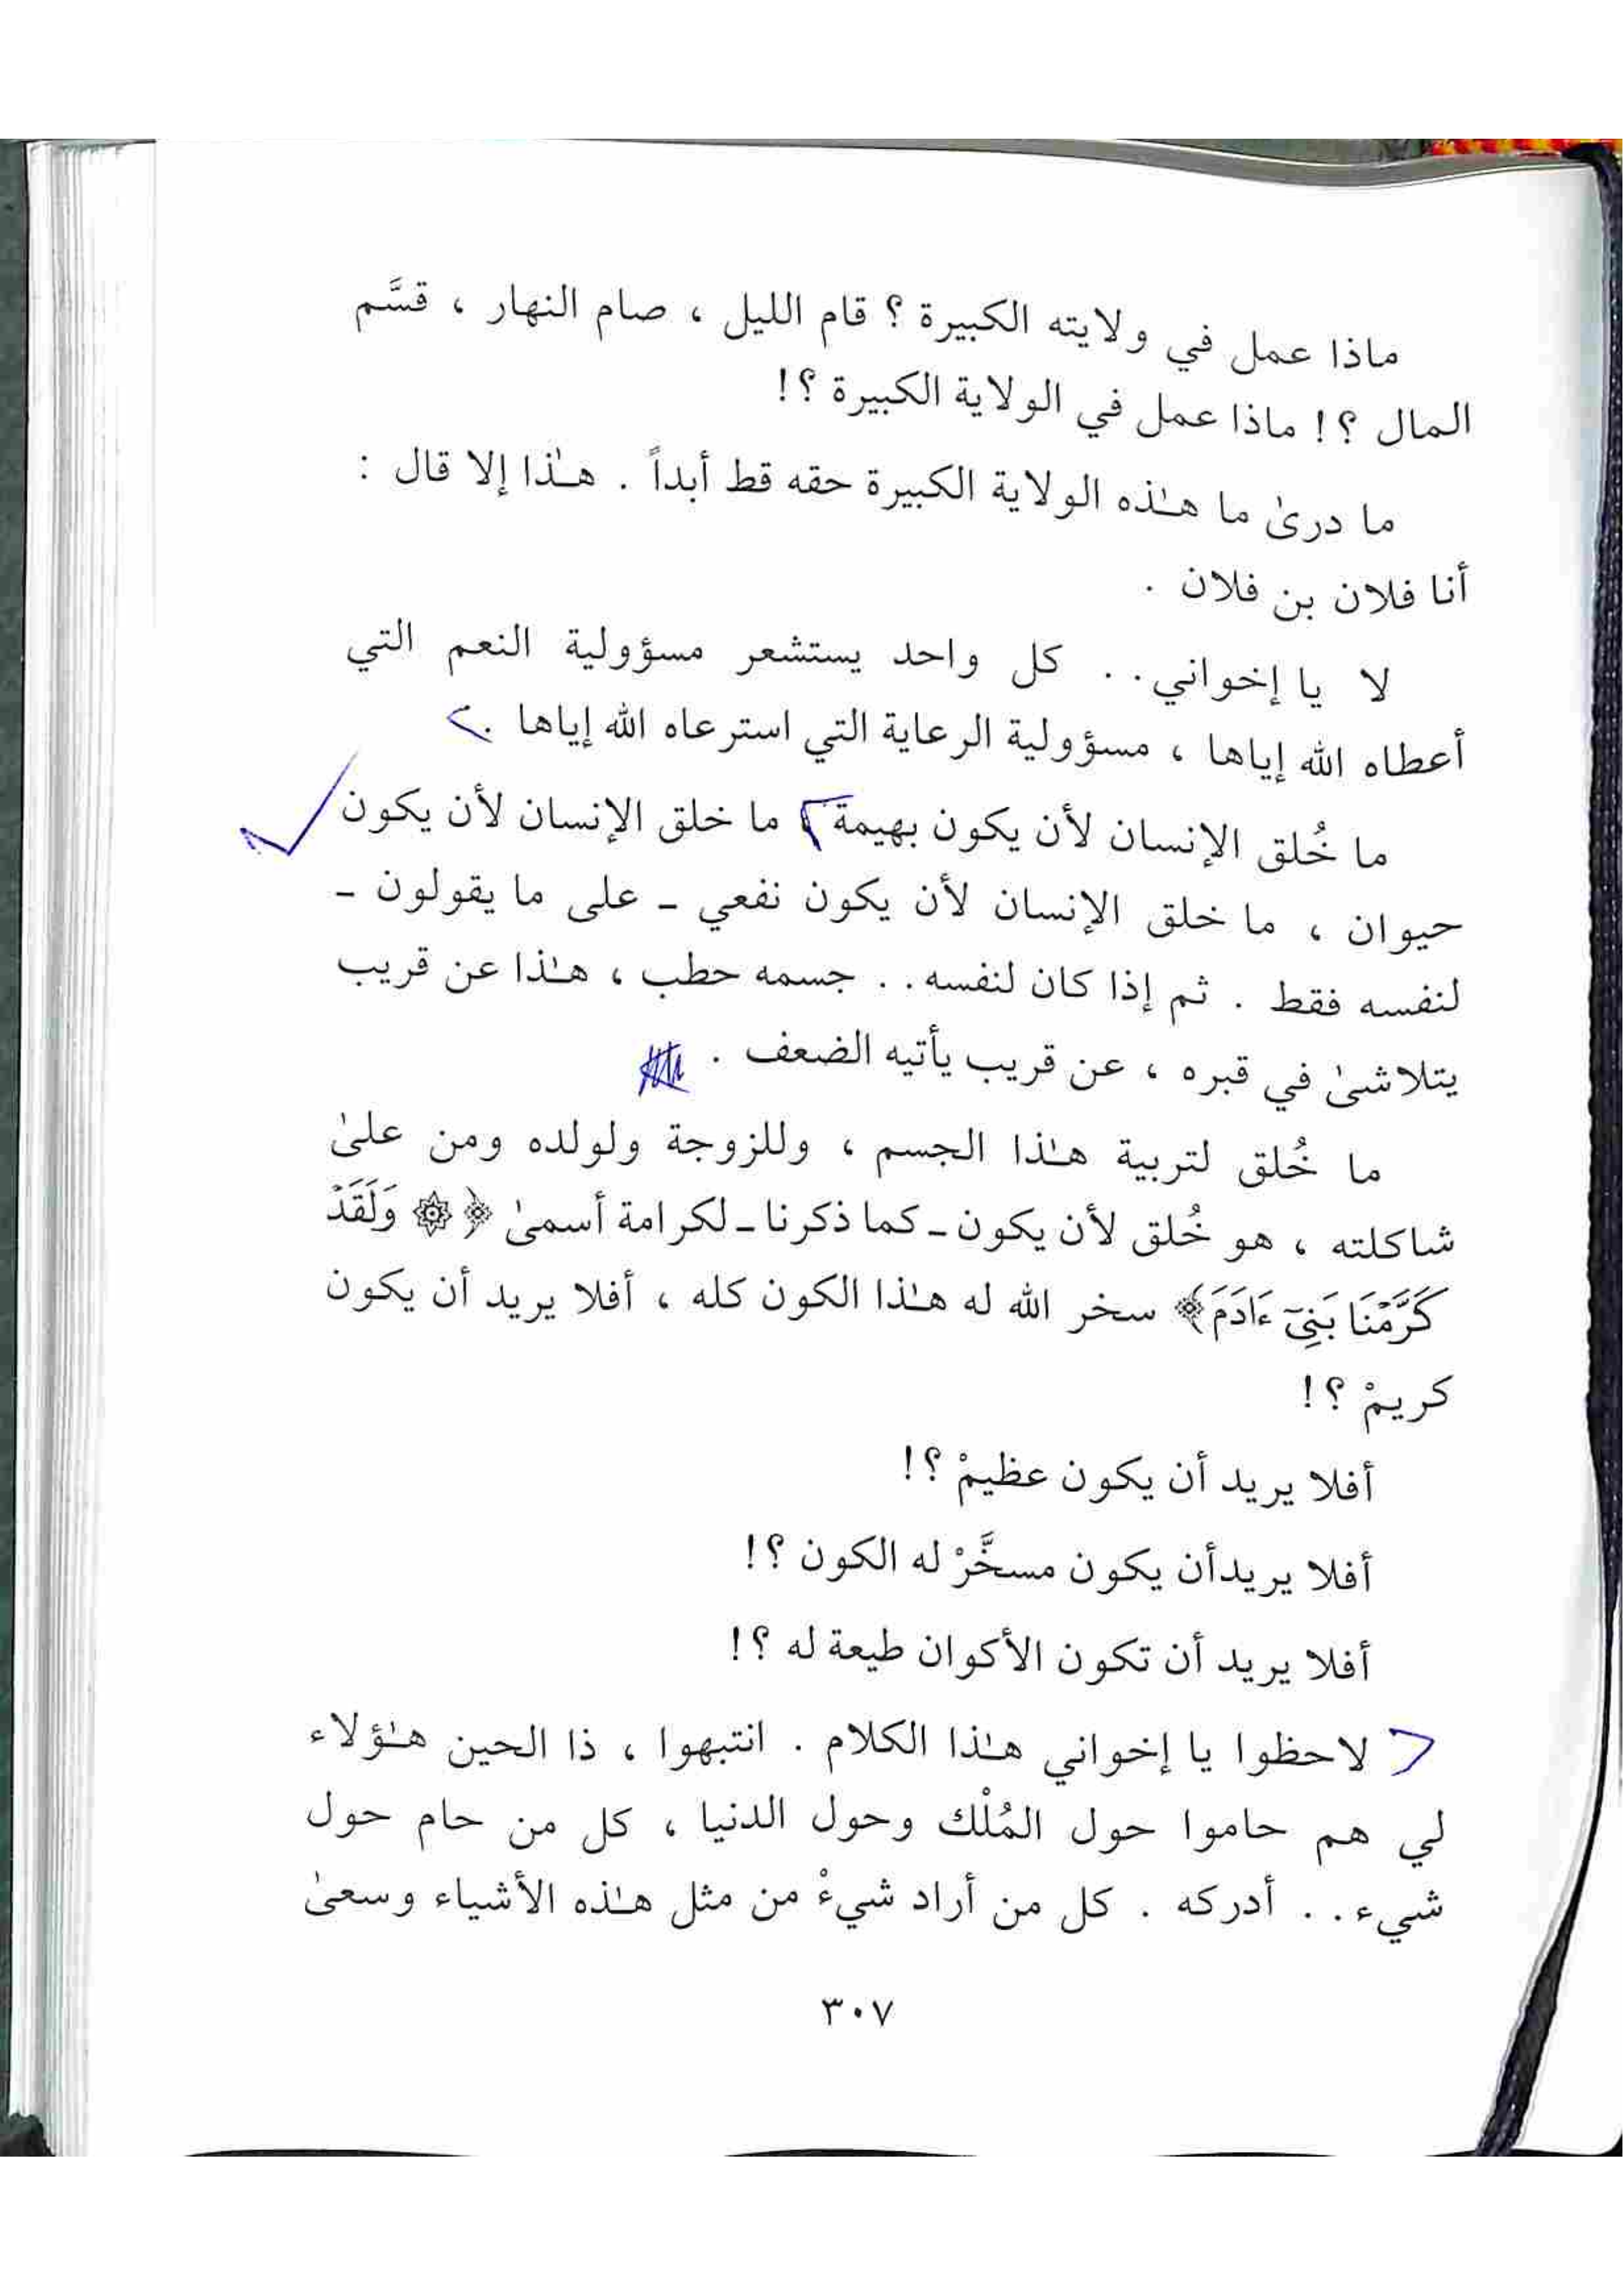 ماذا عمل في ولايته الكبيرة ؟ قام الليل ، صام النهار ، قسَّم
المال ؟ ! ماذا عمل في الولاية الكبيرة ؟ !
ما درىٰ ما هـٰذه الولاية الكبيرة حقه قط أبداً . هـٰذا إلا قال :
أنا فلان بن فلان .
لا يا إخواني . . كل واحد يستشعر مسؤولية النعم التي
أعطاه الله إياها ، مسؤولية الرعاية التي استرعاه الله إياها .
ما خُلق الإنسان لأن يكون بهيمة ، ما خلق الإنسان لأن يكون
حيوان ، ما خلق الإنسان لأن يكون نفعي ـ على ما يقولون ـ
لنفسه فقط . ثم إذا كان لنفسه . . جسمه حطب ، هـٰذا عن قريب
يتلاشىٰ في قبره ، عن قريب يأتيه الضعف .
ما خُلق لتربية هـٰذا الجسم ، وللزوجة ولولده ومن علىٰ
شاكلته ، هو خُلق لأن يكون ـ كما ذكرنا ـ لكرامة أسمىٰ ﴿ ۞ وَلَقَدْ
كَرَّمْنَا بَنِىٓ ءَادَمَ ﴾ سخر الله له هـٰذا الكون كله ، أفلا يريد أن يكون
كريمْ ؟ !
أفلا يريد أن يكون عظيمْ ؟ !
أفلا يريدأن يكون مسخَّرْ له الكون ؟ !
أفلا يريد أن تكون الأكوان طيعة له ؟ !
لاحظوا يا إخواني هـٰذا الكلام . انتبهوا ، ذا الحين هـٰؤلاء
لي هم حاموا حول المُلْك وحول الدنيا ، كل من حام حول
شيء . . أدركه . كل من أراد شيءْ من مثل هـٰذه الأشياء وسعىٰ
٣٠٧